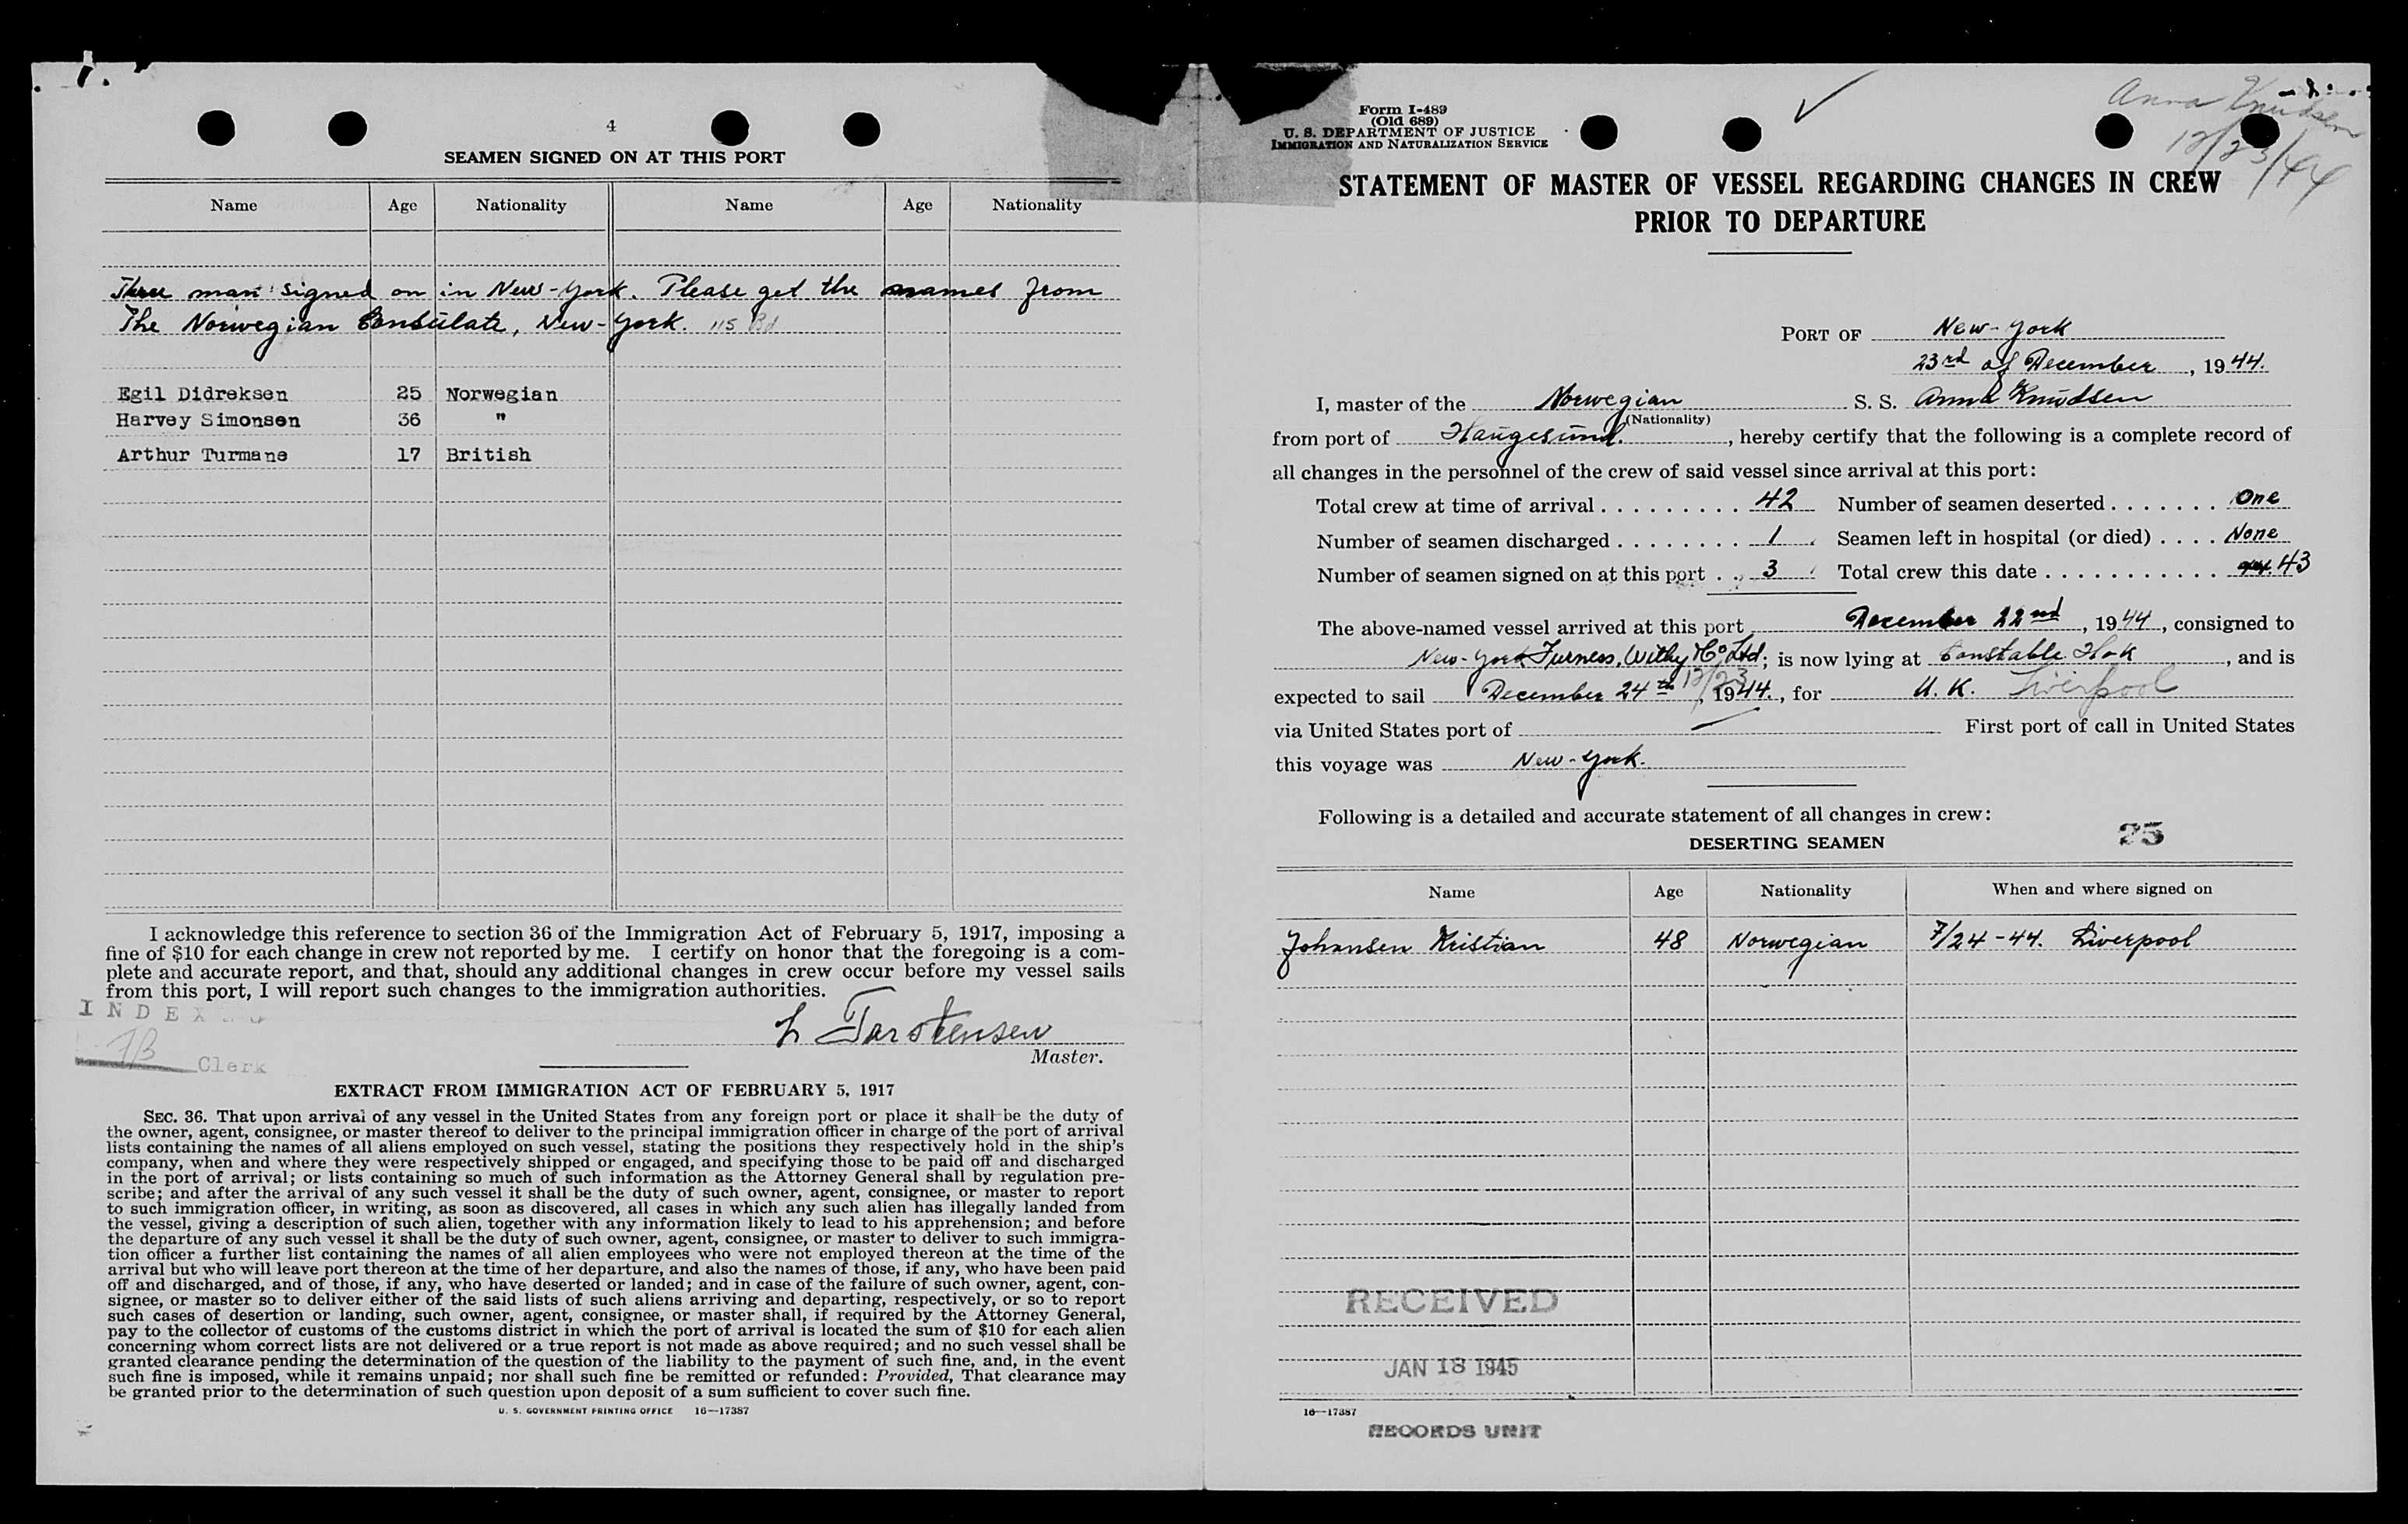 4
SEAMEN SIGNED ON AT THIS PORT
Name Age Nationality Name Age Nationality
Three man signed on in New-York. Please get the names from
The Norwegian Consulate, New-York. 115 Bd
Egil Didreksen 25 Norwegian
Harvey Simonsen 36 "
Arthur Turmane 17 British
I acknowledge this reference to section 36 of the Immigration Act of February 5, 1917, imposing a
fine of $10 for each change in crew not reported by me. I certify on honor that the foregoing is a com-
plete and accurate report, and that, should any additional changes in crew occur before my vessel sails
from this port, I will report such changes to the immigration authorities.
INDEX
Clerk
L Tarstensen
Master.
EXTRACT FROM IMMIGRATION ACT OF FEBRUARY 5, 1917
SEC. 36. That upon arrival of any vessel in the United States from any foreign port or place it shall be the duty of
the owner, agent, consignee, or master thereof to deliver to the principal immigration officer in charge of the port of arrival
lists containing the names of all aliens employed on such vessel, stating the positions they respectively hold in the ship's
company, when and where they were respectively shipped or engaged, and specifying those to be paid off and discharged
in the port of arrival; or lists containing so much of such information as the Attorney General shall by regulation pre-
scribe; and after the arrival of any such vessel it shall be the duty of such owner, agent, consignee, or master to report
to such immigration officer, in writing, as soon as discovered, all cases in which any such alien has illegally landed from
the vessel, giving a description of such alien, together with any information likely to lead to his apprehension; and before
the departure of any such vessel it shall be the duty of such owner, agent, consignee, or master to deliver to such immigra-
tion officer a further list containing the names of all alien employees who were not employed thereon at the time of the
arrival but who will leave port thereon at the time of her departure, and also the names of those, if any, who have been paid
off and discharged, and of those, if any, who have deserted or landed; and in case of the failure of such owner, agent, con-
signee, or master so to deliver either of the said lists of such aliens arriving and departing, respectively, or so to report
such cases of desertion or landing, such owner, agent, consignee, or master shall, if required by the Attorney General,
pay to the collector of customs of the customs district in which the port of arrival is located the sum of $10 for each alien
concerning whom correct lists are not delivered or a true report is not made as above required; and no such vessel shall be
granted clearance pending the determination of the question of the liability to the payment of such fine, and, in the event
such fine is imposed, while it remains unpaid; nor shall such fine be remitted or refunded: Provided, That clearance may
be granted prior to the determination of such question upon deposit of a sum sufficient to cover such fine.
U. S. GOVERNMENT PRINTING OFFICE 16—17387
Form I-489
(Old 689)
U. S. DEPARTMENT OF JUSTICE
IMMIGRATION AND NATURALIZATION SERVICE
Anna Knudsen
12/23/44
STATEMENT OF MASTER OF VESSEL REGARDING CHANGES IN CREW
PRIOR TO DEPARTURE
PORT OF New-York
23rd of December, 1944.
I, master of the Norwegian S. S. Anna Knudsen
(Nationality)
from port of Haugesund., hereby certify that the following is a complete record of
all changes in the personnel of the crew of said vessel since arrival at this port:
Total crew at time of arrival . . . . . . . . . 42 Number of seamen deserted . . . . . . . One
Number of seamen discharged . . . . . . . . 1 Seamen left in hospital (or died) . . . . None
Number of seamen signed on at this port . . 3 Total crew this date . . . . . . . . . . . . 43
The above-named vessel arrived at this port December 22nd, 1944, consigned to
New-York Furness, Withy & Co Ltd; is now lying at Constable Hok, and is
expected to sail December 24th 12/23, 1944., for U. K. Liverpool
via United States port of — First port of call in United States
this voyage was New-York.
Following is a detailed and accurate statement of all changes in crew:
DESERTING SEAMEN 25
Name Age Nationality When and where signed on
Johansen Kristian 48 Norwegian 7/24-44. Liverpool
RECEIVED
JAN 18 1945
16—17387
RECORDS UNIT